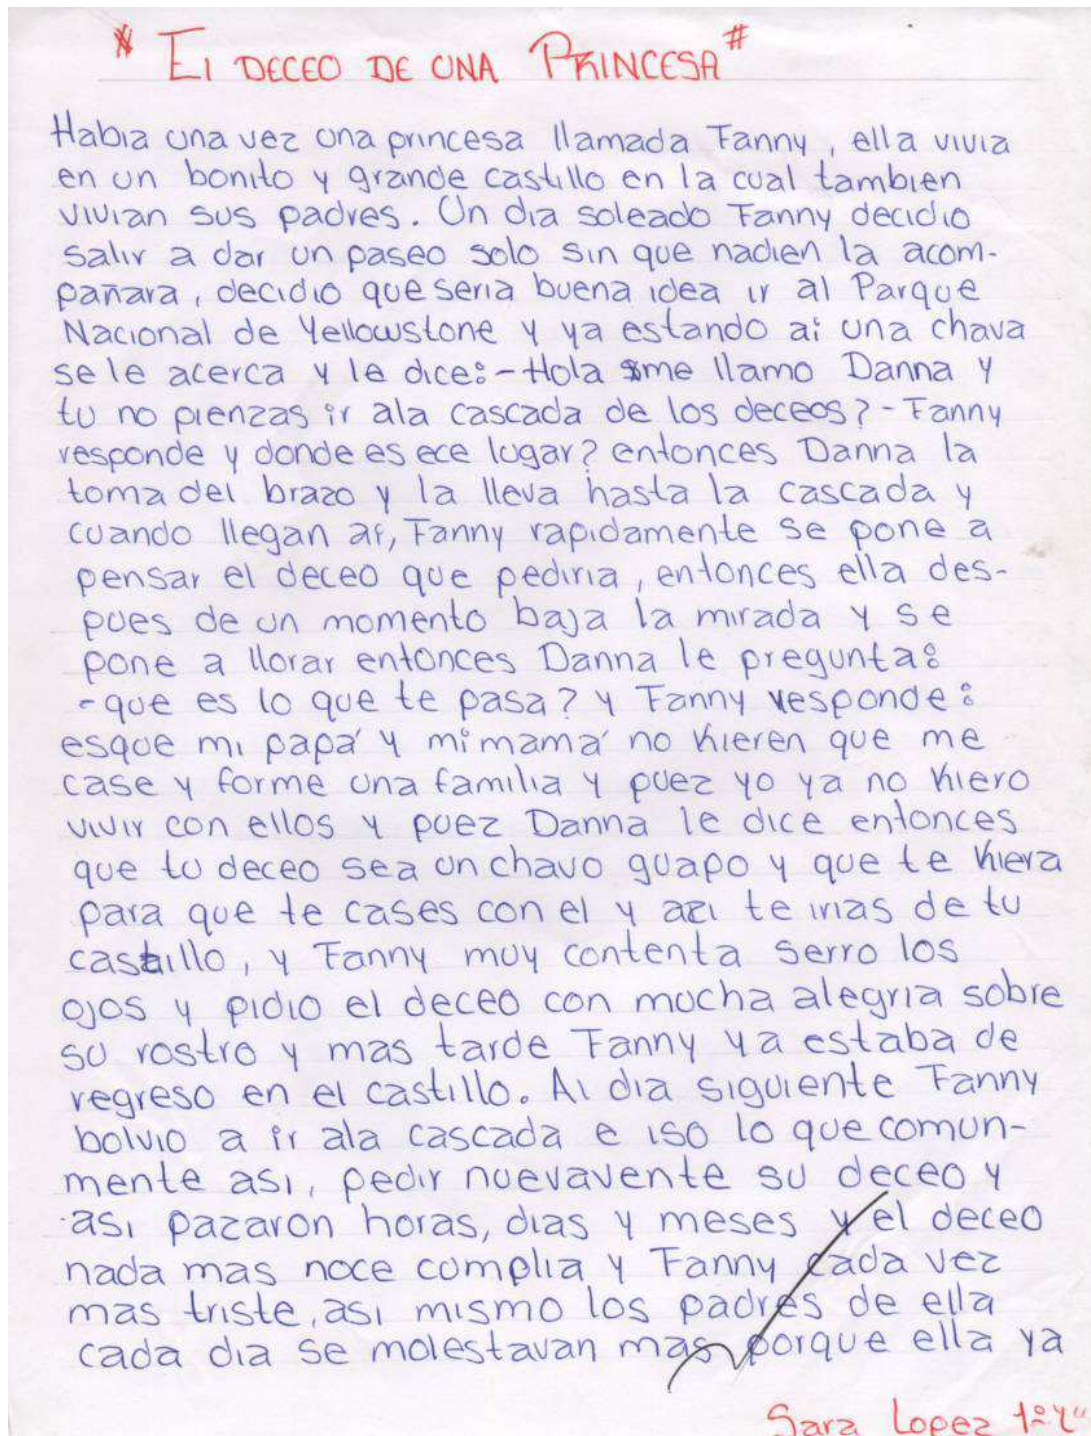 * El DECEO DE UNA PRINCESA #
Habia una vez una princesa llamada Fanny, ella vivia
en un bonito y grande castillo en la cual tambien
vivian sus padres. Un dia soleado Fanny decidio
salir a dar un paseo solo sin que nadien la acom-
pañara, decidio que seria buena idea ir al Parque
Nacional de Yellowstone y ya estando ai una chava
se le acerca y le dice: - Hola me llamo Danna y
tu no pienzas ir ala cascada de los deceos? - Fanny
responde y donde es ece lugar? entonces Danna la
toma del brazo y la lleva hasta la cascada y
cuando llegan ai, Fanny rapidamente se pone a
pensar el deceo que pediria, entonces ella des-
pues de un momento baja la mirada y se
pone a llorar entonces Danna le pregunta:
- que es lo que te pasa? y Fanny responde:
esque mi papá y mi mamá no kieren que me
case y forme una familia y puez yo ya no kiero
vivir con ellos y puez Danna le dice entonces
que tu deceo sea un chavo guapo y que te kiera
para que te cases con el y azi te irias de tu
castillo, y Fanny muy contenta serro los
ojos y pidio el deceo con mucha alegria sobre
su rostro y mas tarde Fanny ya estaba de
regreso en el castillo. Al dia siguiente Fanny
bolvio a ir ala cascada e iso lo que comun-
mente asi, pedir nuevavente su deceo y
asi pazaron horas, dias y meses y el deceo
nada mas noce complia y Fanny cada vez
mas triste, asi mismo los padres de ella
cada dia se molestavan mas porque ella ya
Sara Lopez